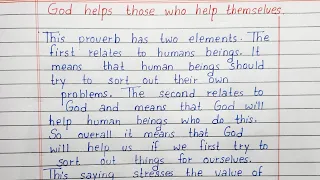 God helps those who help themselves.
This proverb has two elements. The
first relates to humans beings. It
means that human beings should
try to sort out their own
problems. The second relates to
God and means that God will
help human beings who do this.
So overall it means that God
will help us if we first try to
sort out things for ourselves.
This saying stresses the value of